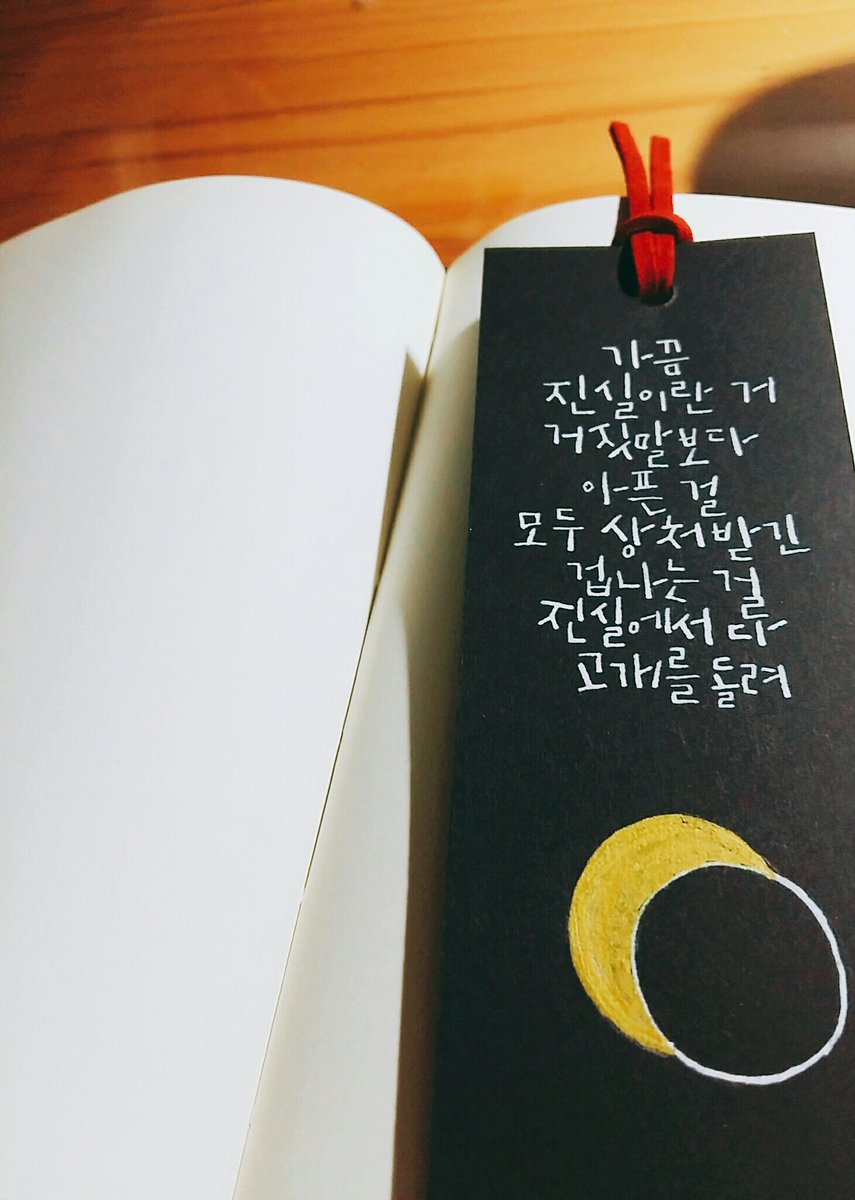 가끔
진실이란 거
거짓말보다
아픈 걸
모두 상처받긴
겁나는 걸
진실에서 다
고개를 돌려